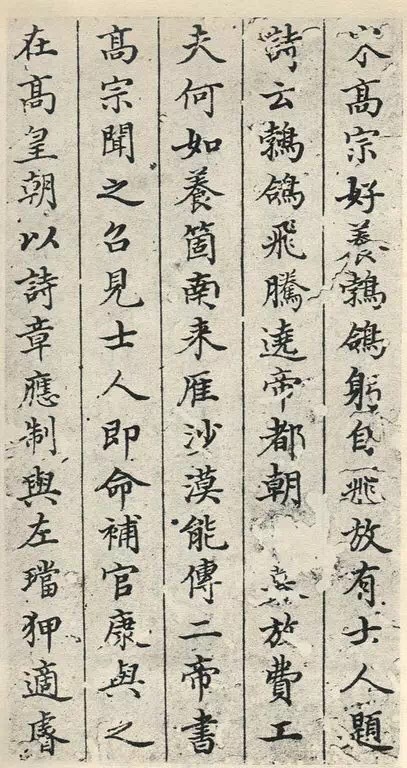 高宗好養鵓鴿躬自飛放有士人題
詩云鵓鴿飛騰遶帝都朝放費工
夫何如養箇南来雁沙漠能傳二帝書
高宗聞之召見士人即命補官康與之
在高皇朝以詩章應制與左璫狎適睿